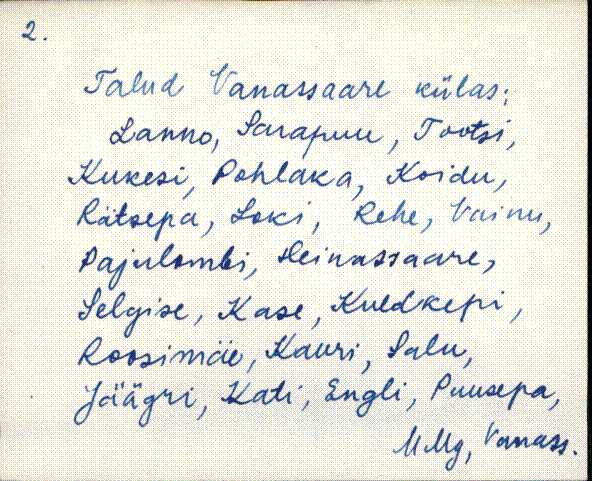 2.
Talud Vanassaare külas:
Lanno, Sarapuu, Tootsi,
Kukesi, Pohlaka, Koidu,
Rätsepa, Loki, Rehe, Vainu,
Pajulombi, Heinassaare,
Selgise, Kase, Kuldkepi,
Roosimäe, Kauri, Salu,
Jäägri, Kati, Engli, Puusepa,
MMg, Vanass.